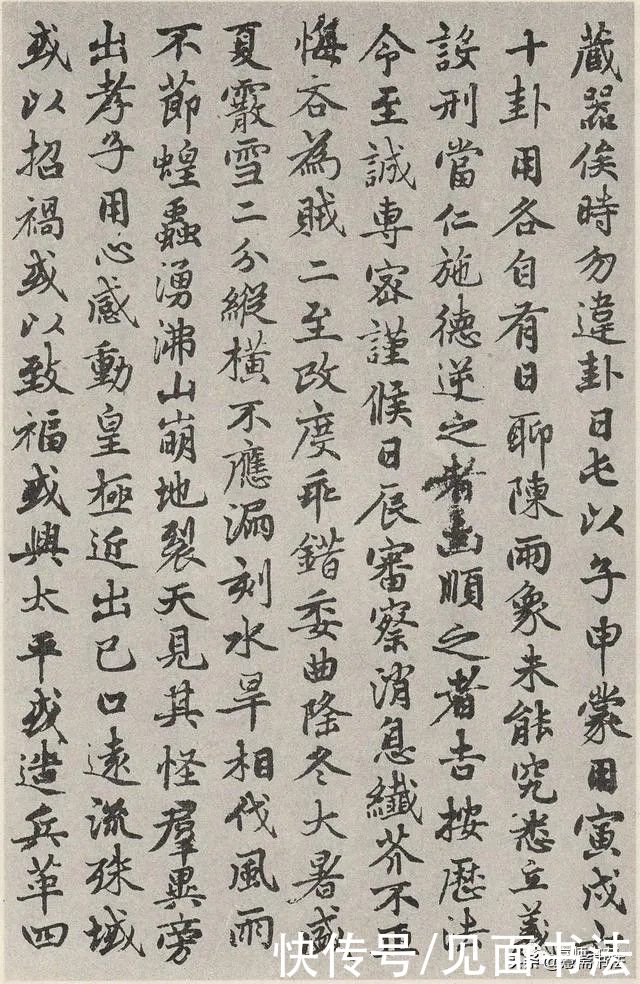 藏器俟時勿違卦日屯以子申蒙用寅戌
十卦用各自有日聊陳兩象未能究悉立義
設刑當仁施德逆之者凶順之者吉按歷法
令至誠專密謹候日辰審察消息纖芥不正
悔吝為賊二至改度乖錯委曲隆冬大暑盛
夏霰雪二分縱橫不應漏刻水旱相伐風雨
不節蝗蟲湧沸山崩地裂天見其怪羣異旁
出孝子用心感動皇極近出己口遠流殊域
或以招禍或以致福或興太平或造兵革四
快传号/见面书法